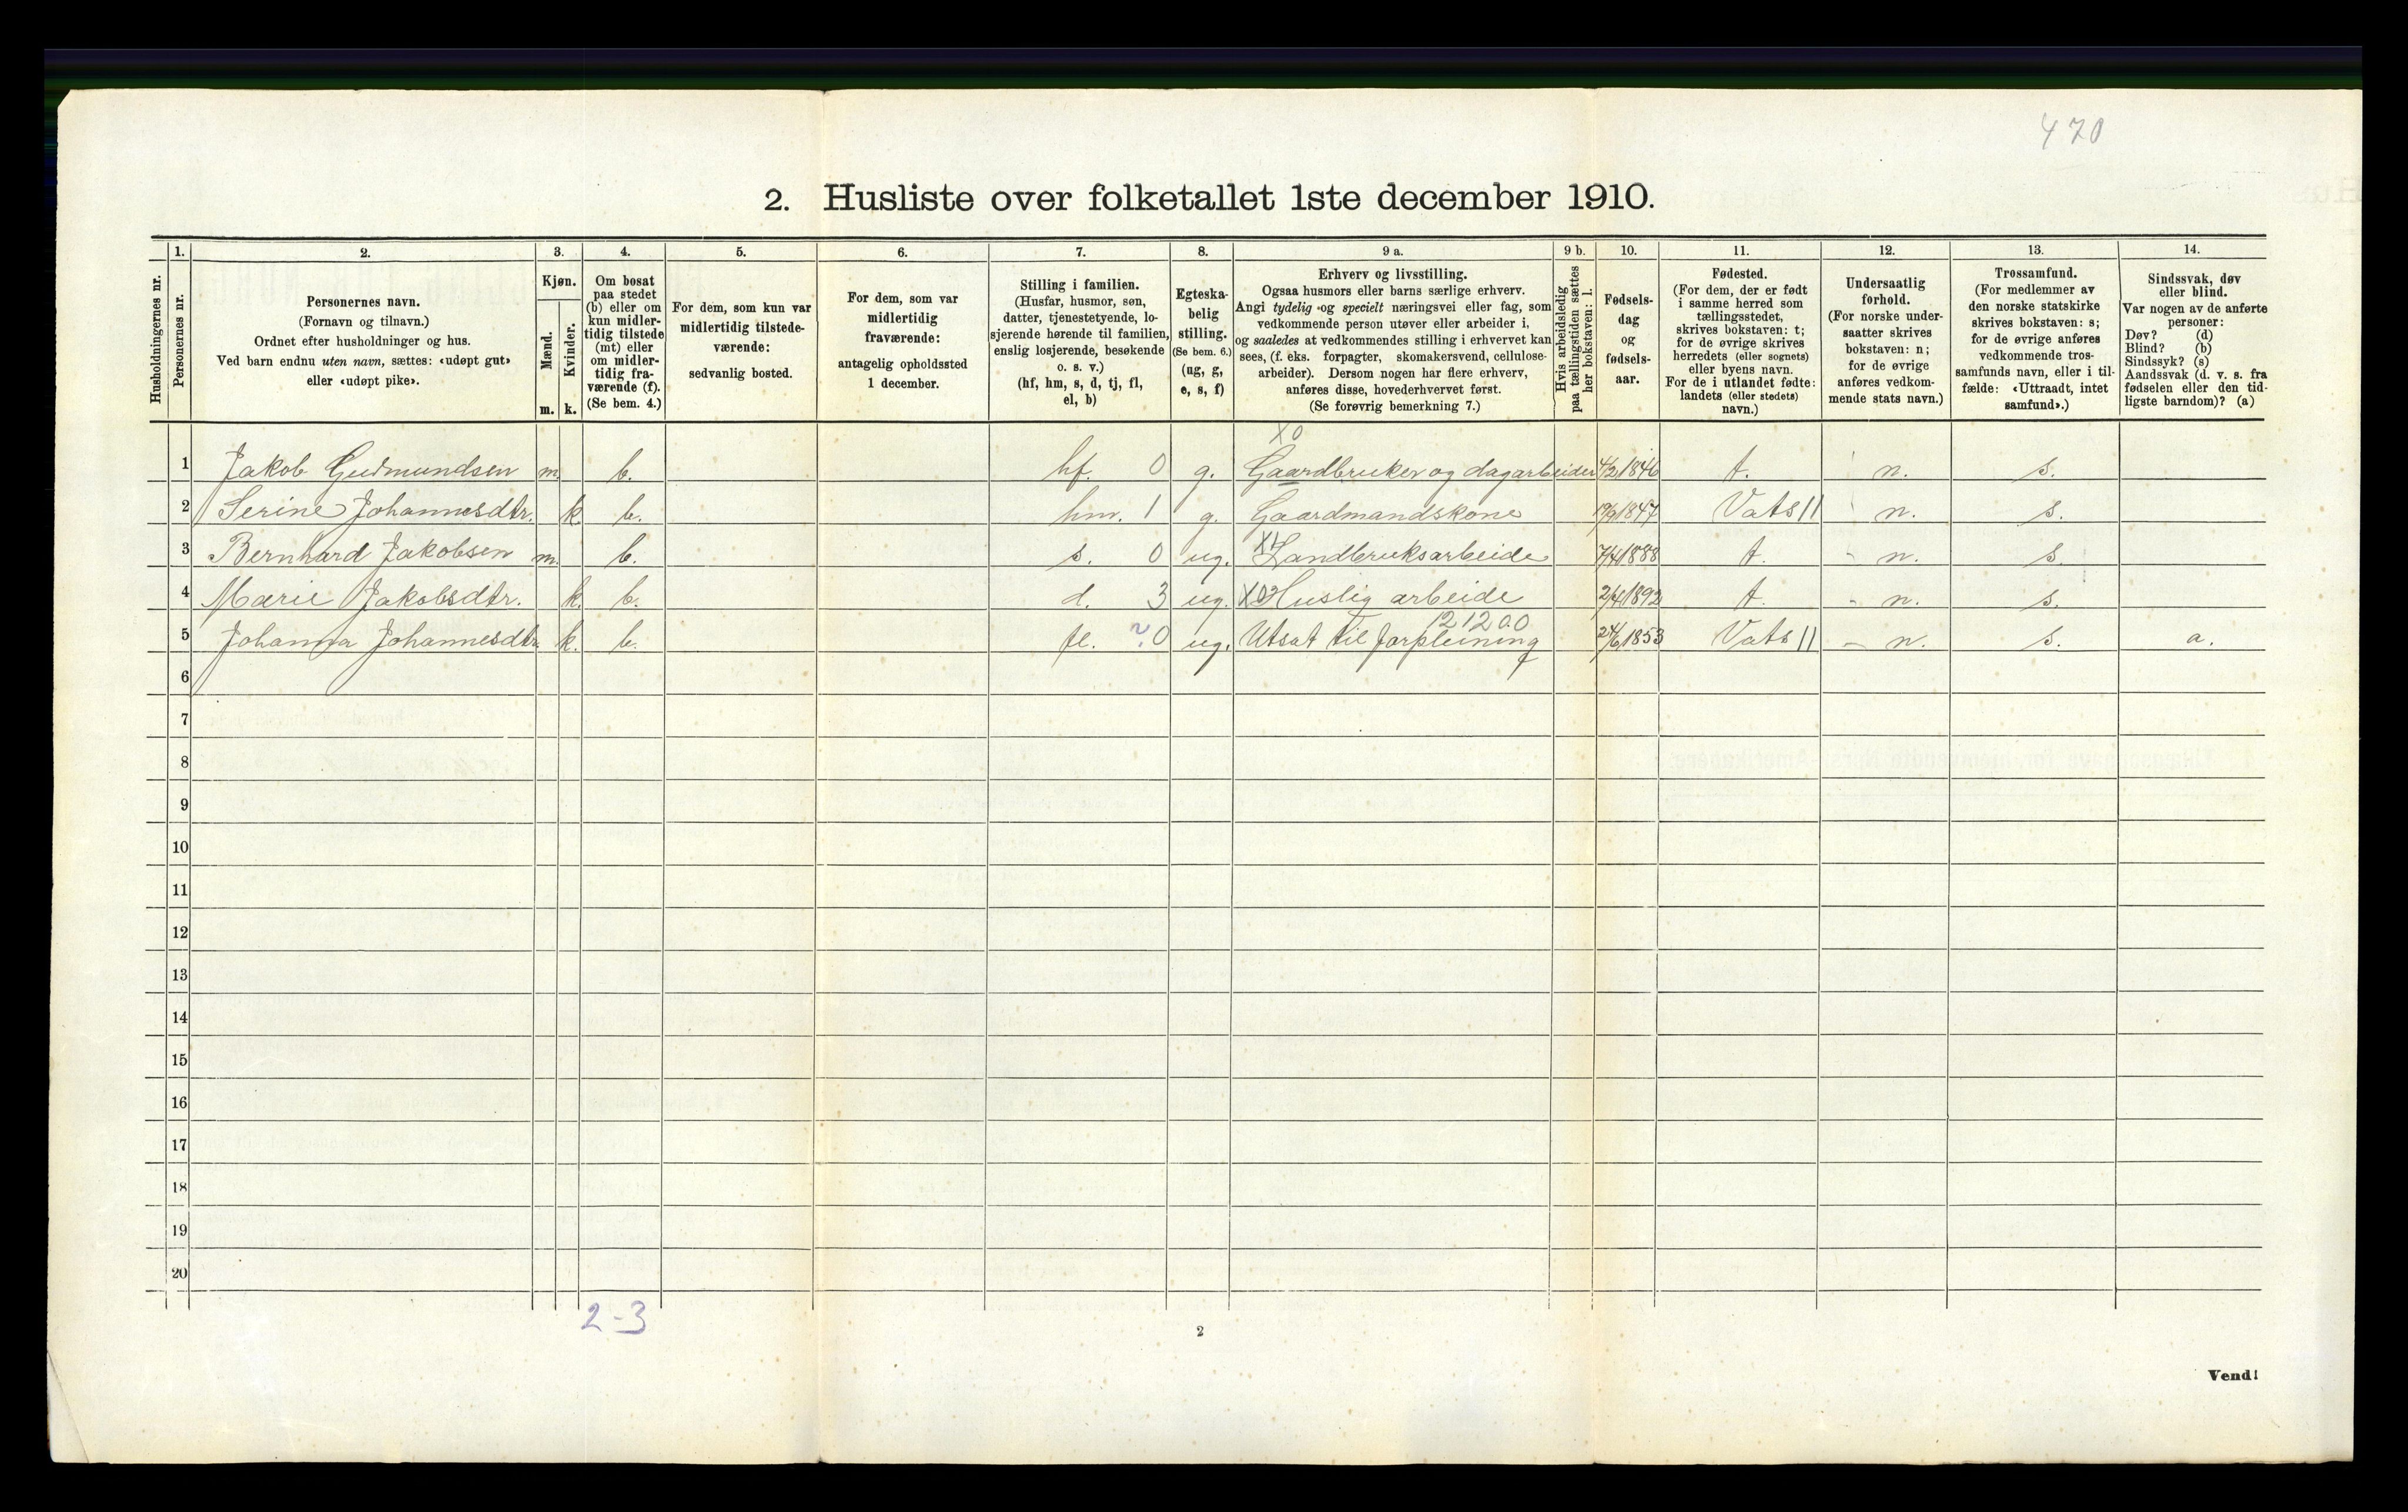 470
2. Husliste over folketallet 1ste december 1910.
1. 2. 3. 4. 5. 6. 7. 8. 9 a. 9 b. 10. 11. 12. 13. 14.
Husholdningernes nr.
Personernes nr.
Personernes navn.
(Fornavn og tilnavn.)
Ordnet efter husholdninger og hus.
Ved barn endnu uten navn, sættes: «udøpt gut»
eller «udøpt pike».
Kjøn.
Mænd.
Kvinder.
m. k.
Om bosat
paa stedet
(b) eller om
kun midler-
tidig tilstede
(mt) eller
om midler-
tidig fra-
værende (f).
(Se bem. 4.)
For dem, som kun var
midlertidig tilstede-
værende:
sedvanlig bosted.
For dem, som var
midlertidig
fraværende:
antagelig opholdssted
1 december.
Stilling i familien.
(Husfar, husmor, søn,
datter, tjenestetyende, lo-
sjerende hørende til familien,
enslig losjerende, besøkende
o. s. v.)
(hf, hm, s, d, tj, fl,
el, b)
Egteska-
belig
stilling.
(Se bem. 6.)
(ug, g,
e, s, f)
Erhverv og livsstilling.
Ogsaa husmors eller barns særlige erhverv.
Angi tydelig og specielt næringsvei eller fag, som
vedkommende person utøver eller arbeider i,
og saaledes at vedkommendes stilling i erhvervet kan
sees, (f. eks. forpagter, skomakersvend, cellulose-
arbeider). Dersom nogen har flere erhverv,
anføres disse, hovederhvervet først.
(Se forøvrig bemerkning 7.)
Hvis arbeidsledig
paa tællingstiden sættes
her bokstaven: l.
Fødsels-
dag
og
fødsels-
aar.
Fødested.
(For dem, der er født
i samme herred som
tællingsstedet,
skrives bokstaven: t;
for de øvrige skrives
herredets (eller sognets)
eller byens navn.
For de i utlandet fødte:
landets (eller stedets)
navn.)
Undersaatlig
forhold.
(For norske under-
saatter skrives
bokstaven: n;
for de øvrige
anføres vedkom-
mende stats navn.)
Trossamfund.
(For medlemmer av
den norske statskirke
skrives bokstaven: s;
for de øvrige anføres
vedkommende tros-
samfunds navn, eller i til-
fælde: «Uttraadt, intet
samfund».)
Sindssvak, døv
eller blind.
Var nogen av de anførte
personer:
Døv? (d)
Blind? (b)
Sindssyk? (s)
Aandssvak (d. v. s. fra
fødselen eller den tid-
ligste barndom)? (a)
X0
1 Jakob Gudmundsen m. b. hf. 0 g. Gaardbruker og dagarbeider 4/2 1846 t. n. s.
2 Serine Johannesdtr. k. b. hm. 1 g. Gaardmandskone 19/9 1847 Vats 11 n. s.
3 Bernhard Jakobsen m. b. s. 0 ug. Landbruksarbeide 7/4 1888 t. - n. s.
4 Marie Jakobsdtr. k. b. d. 3 ug. X0 Huslig arbeide 2/4 1892 t. - n. s.
121200
5 Johanna Johannesdtr. k. b. fl. ? 0 ug. Utsat til forpleining 24/6 1853 Vats 11 - n. s. a.
6
7
8
9
10
11
12
13
14
15
16
17
18
19
20
2-3
2
Vend!